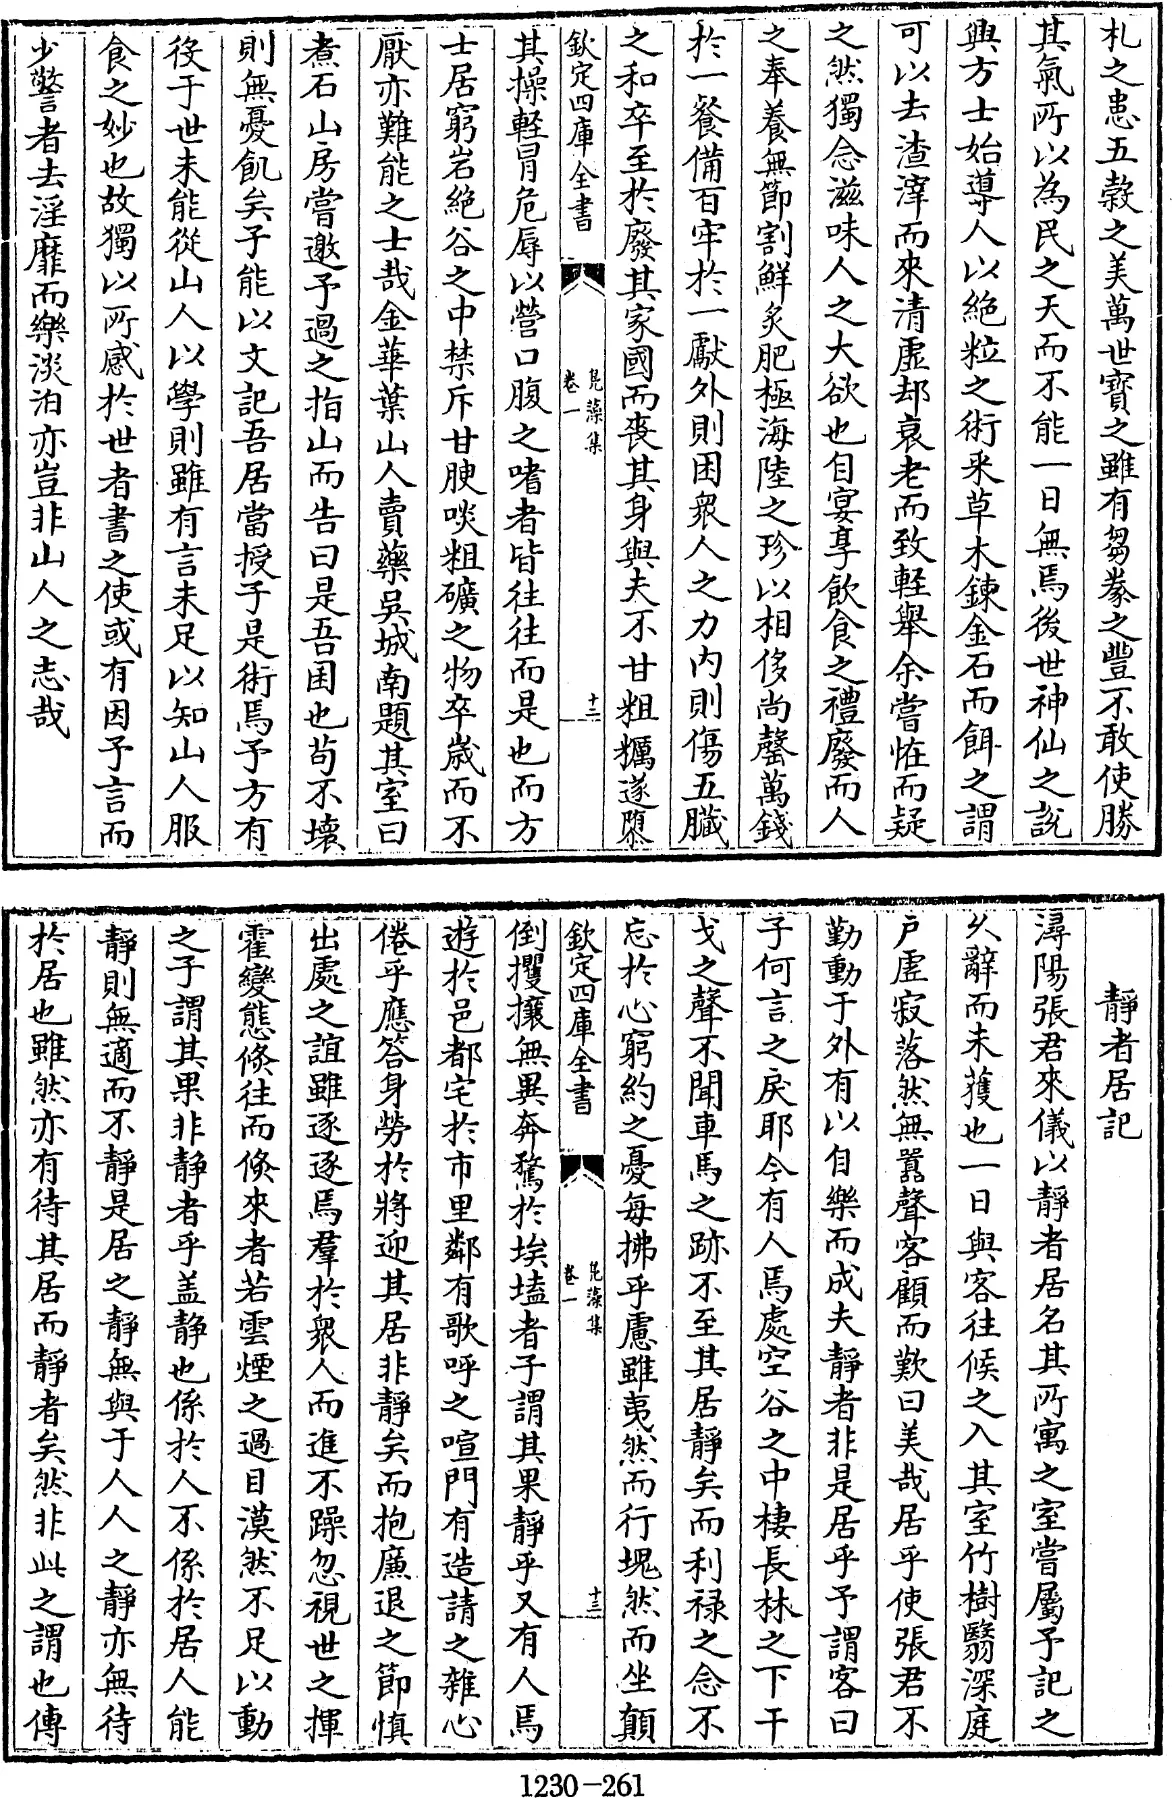 札之患五穀之美萬世寳之雖有芻豢之豐不敢使勝
其氣所以為民之天而不能一日無焉後世神仙之說
興方士始導人以絶粒之術采草木鍊金石而餌之謂
可以去渣滓而來清虛却衰老而致軽舉余嘗怪而疑
之然獨念滋味人之大欲也自宴享飲食之禮廢而人
之奉養無節割鮮炙肥極海陸之珍以相侈尚罄萬錢
於一餐備百牢於一獻外則困衆人之力内則傷五臟
之和卒至於廢其家國而喪其身與夫不甘粗糲遂隳
欽定四庫全書
鳬藻集
卷一
十二
其操軽冒危辱以營口腹之嗜者皆往往而是也而方
士居窮岩絶谷之中禁斥甘腴啖粗礦之物卒歲而不
厭亦難能之士哉金華葉山人賣藥吳城南題其室曰
煮石山房嘗邀予過之指山而告曰是吾囷也茍不壞
則無憂飢矣子能以文記吾居當授子是術焉予方有
役于世未能從山人以學則雖有言未足以知山人服
食之妙也故獨以所感於世者書之使或有因予言而
少警者去淫靡而樂淡泊亦豈非山人之志哉
靜者居記
潯陽張君來儀以靜者居名其所寓之室嘗屬予記之
久辭而未獲也一日與客往候之入其室竹樹翳深庭
戶虛寂落然無囂聲客顧而歎曰美哉居乎使張君不
勤動于外有以自樂而成夫靜者非是居乎予謂客曰
子何言之戾耶今有人焉處空谷之中棲長林之下干
戈之聲不聞車馬之跡不至其居靜矣而利禄之念不
忘於心窮約之憂毎拂乎慮雖夷然而行塊然而坐顛
欽定四庫全書
鳬藻集
卷一
十三
倒攫攘無異奔騖於埃壒者子謂其果靜乎又有人焉
遊於邑都宅於市里鄰有歌呼之喧門有造請之雜心
倦乎應答身勞於將迎其居非靜矣而抱廉退之節慎
出處之誼雖逐逐焉羣於衆人而進不躁忽視世之揮
霍變態倐往而倐來者若雲煙之過目漠然不足以動
之子謂其果非静者乎盖静也係於人不係於居人能
靜則無適而不靜是居之靜無與于人人之靜亦無待
於居也雖然亦有待其居而靜者矣然非此之謂也傳
1230-261